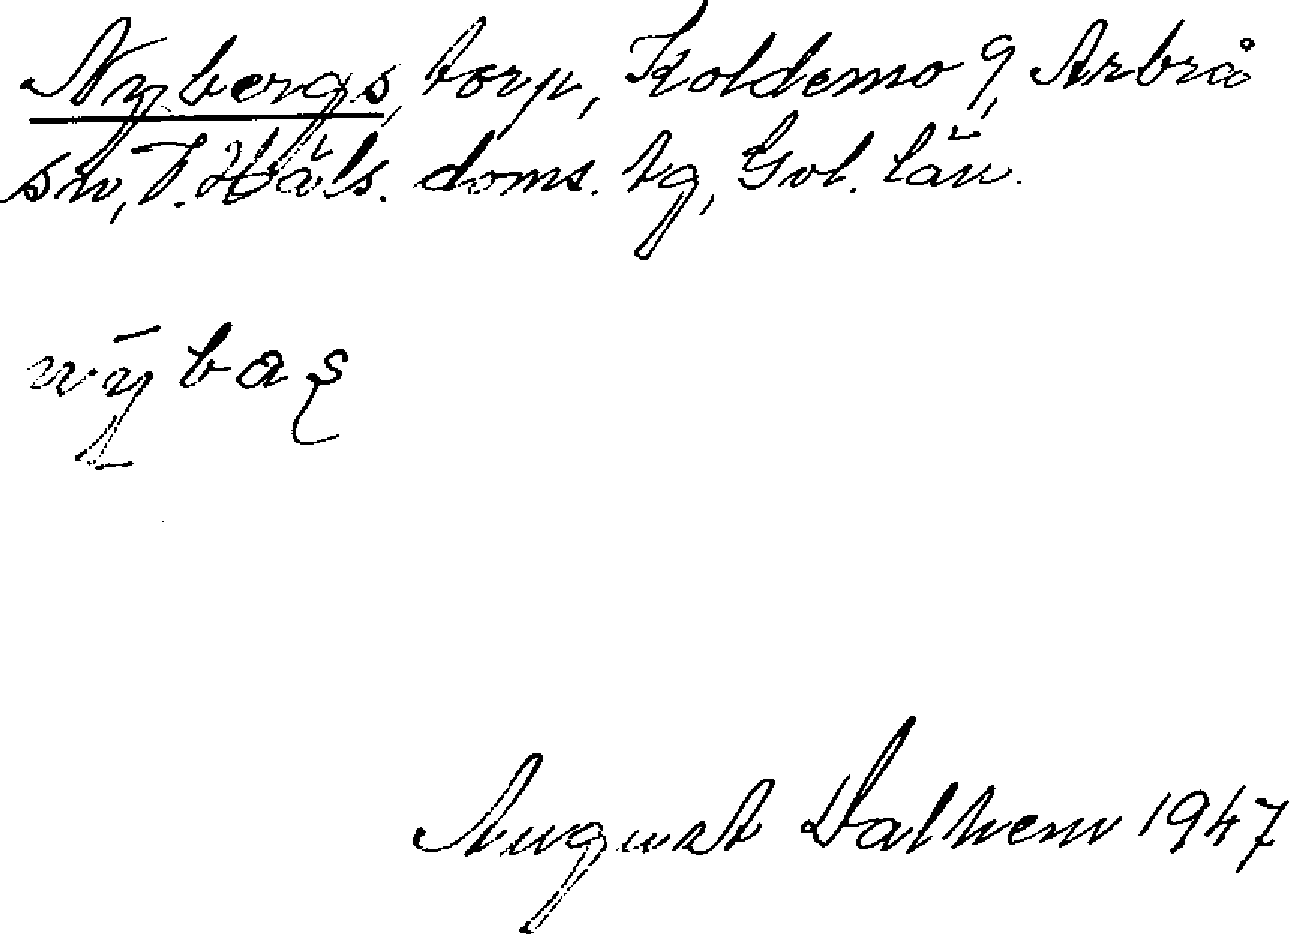 Nybergs, torp, Koldemo 9, Arbrå
sn, V. Häls. doms. tg, Gvl. län.
nȳbaş
August Dalhem 1947